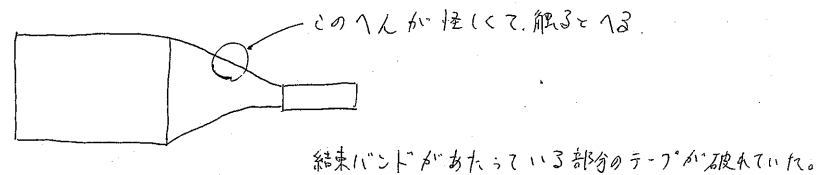 このへんが怪しくて、触るとへる
結束バンドがあたっている部分のテープが破れていた。